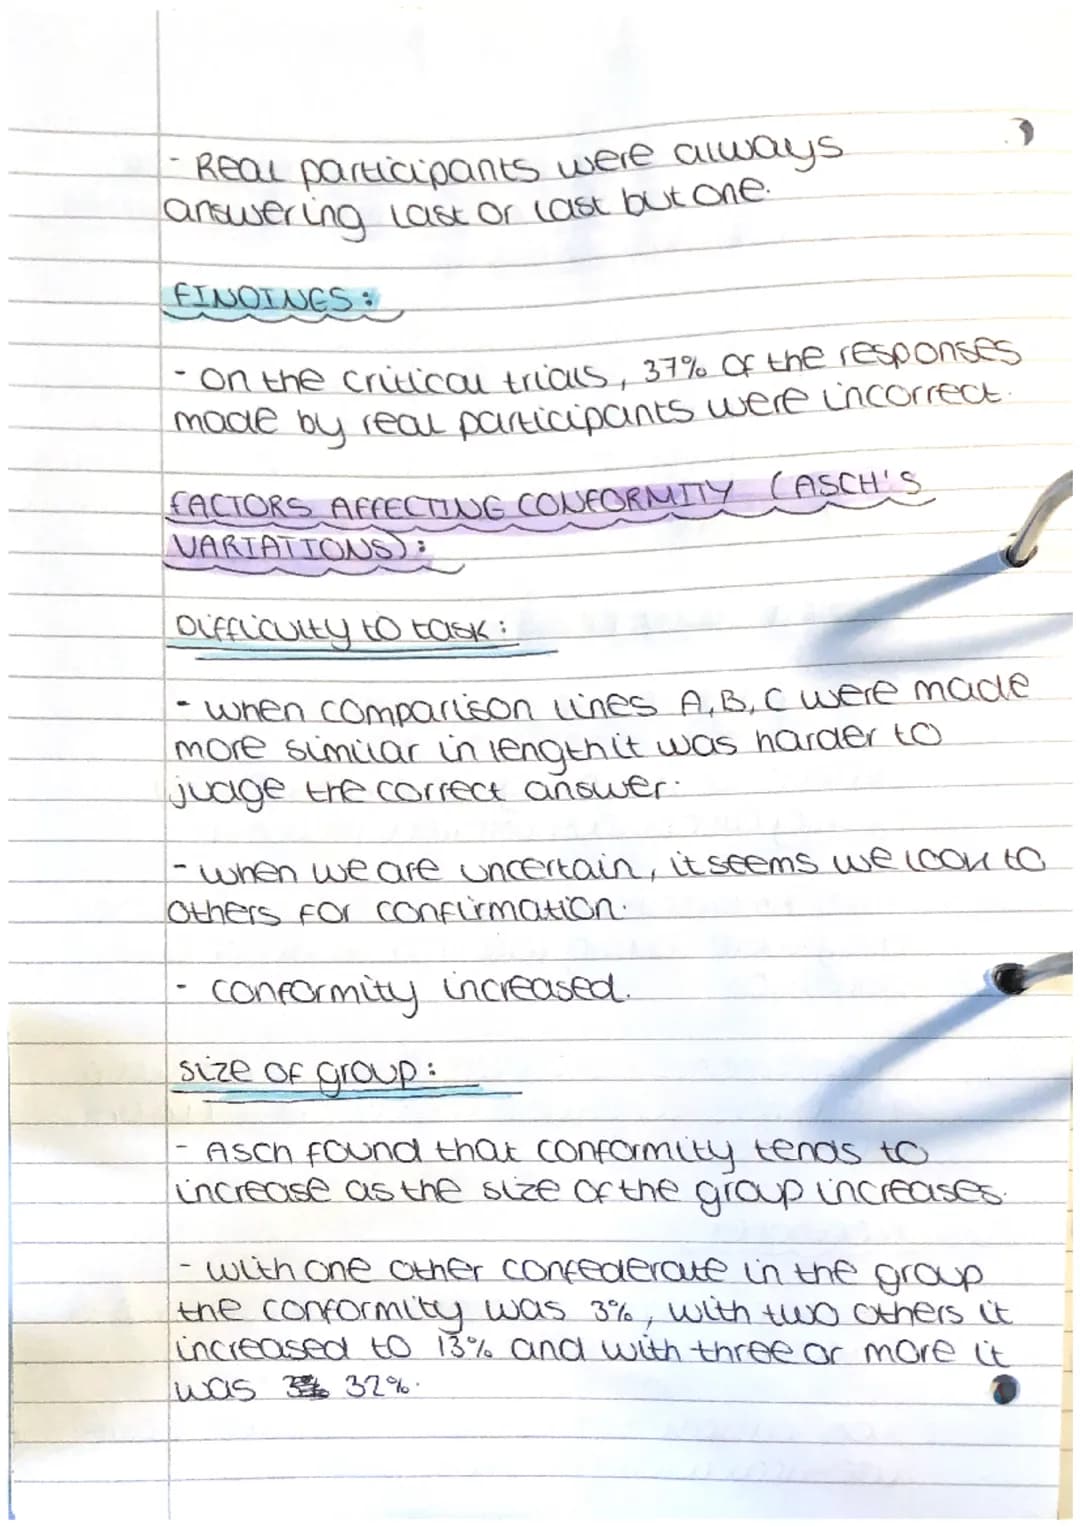 - Real participants were always
answering last or last but one.
FINDINGS:
- on the critical trials, 37% of the responses
made by real participants were incorrect.
FACTORS AFFECTING CONFORMITY (ASCH'S
VARIATIONS):
Difficulty to task:
- when comparison lines A, B, C were made
more similar in length it was harder to
judge the correct answer.
- when we are uncertain, it seems we look to
others for confirmation.
- conformity increased.
size of group:
- Asch found that conformity tends to
increase as the size of the group increases.
- with one other confederate in the group
the conformity was 3%, with two others it
increased to 13% and with three or more it
was 32%.